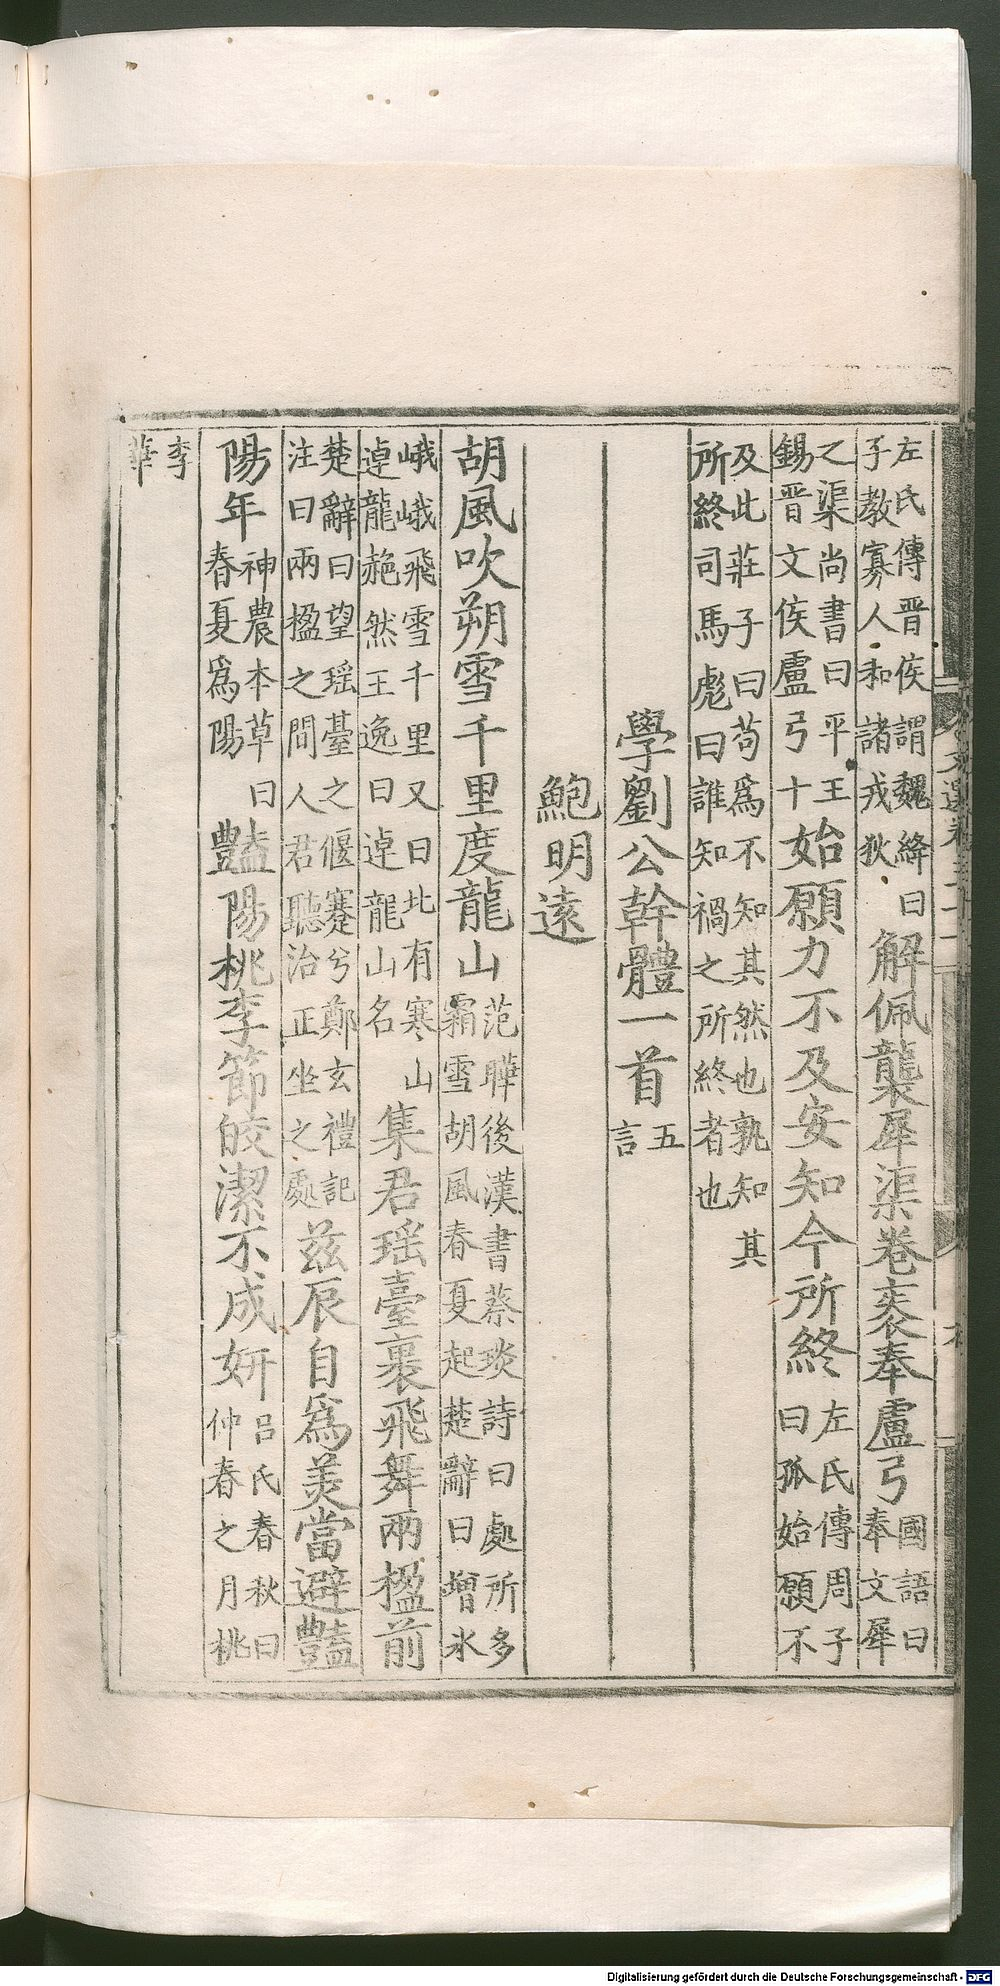 左氏傳晋侯謂魏絳曰
子教寡人和諸戎狄
解佩襲犀渠卷袠奉盧弓
國語曰
奉文犀
之渠尚書曰平王
錫晋文侯盧弓十
始願力不及安知今所終
左氏傳周子
曰孤始願不
及此莊子曰苟爲不知其然也孰知其
所終司馬彪曰誰知禍之所終者也
學劉公幹體一首
五
言
鮑明遠
胡風吹朔雪千里度龍山
范曄後漢書蔡琰詩曰處所多
霜雪胡風春夏起楚辭曰增氷
峨峨飛雪千里又曰北有寒山
逴龍赩然王逸曰逴龍山名
集君瑶臺裏飛舞兩楹前
楚辭曰望瑶臺之偃蹇兮鄭玄禮記
注曰兩楹之間人君聽治正坐之處
兹辰自爲美當避豔
陽年
神農本草曰
春夏爲陽
豔陽桃李節皎潔不成妍
吕氏春秋曰
仲春之月桃
李
華
Digitalisierung gefördert durch die Deutsche Forschungsgemeinschaft - DFG